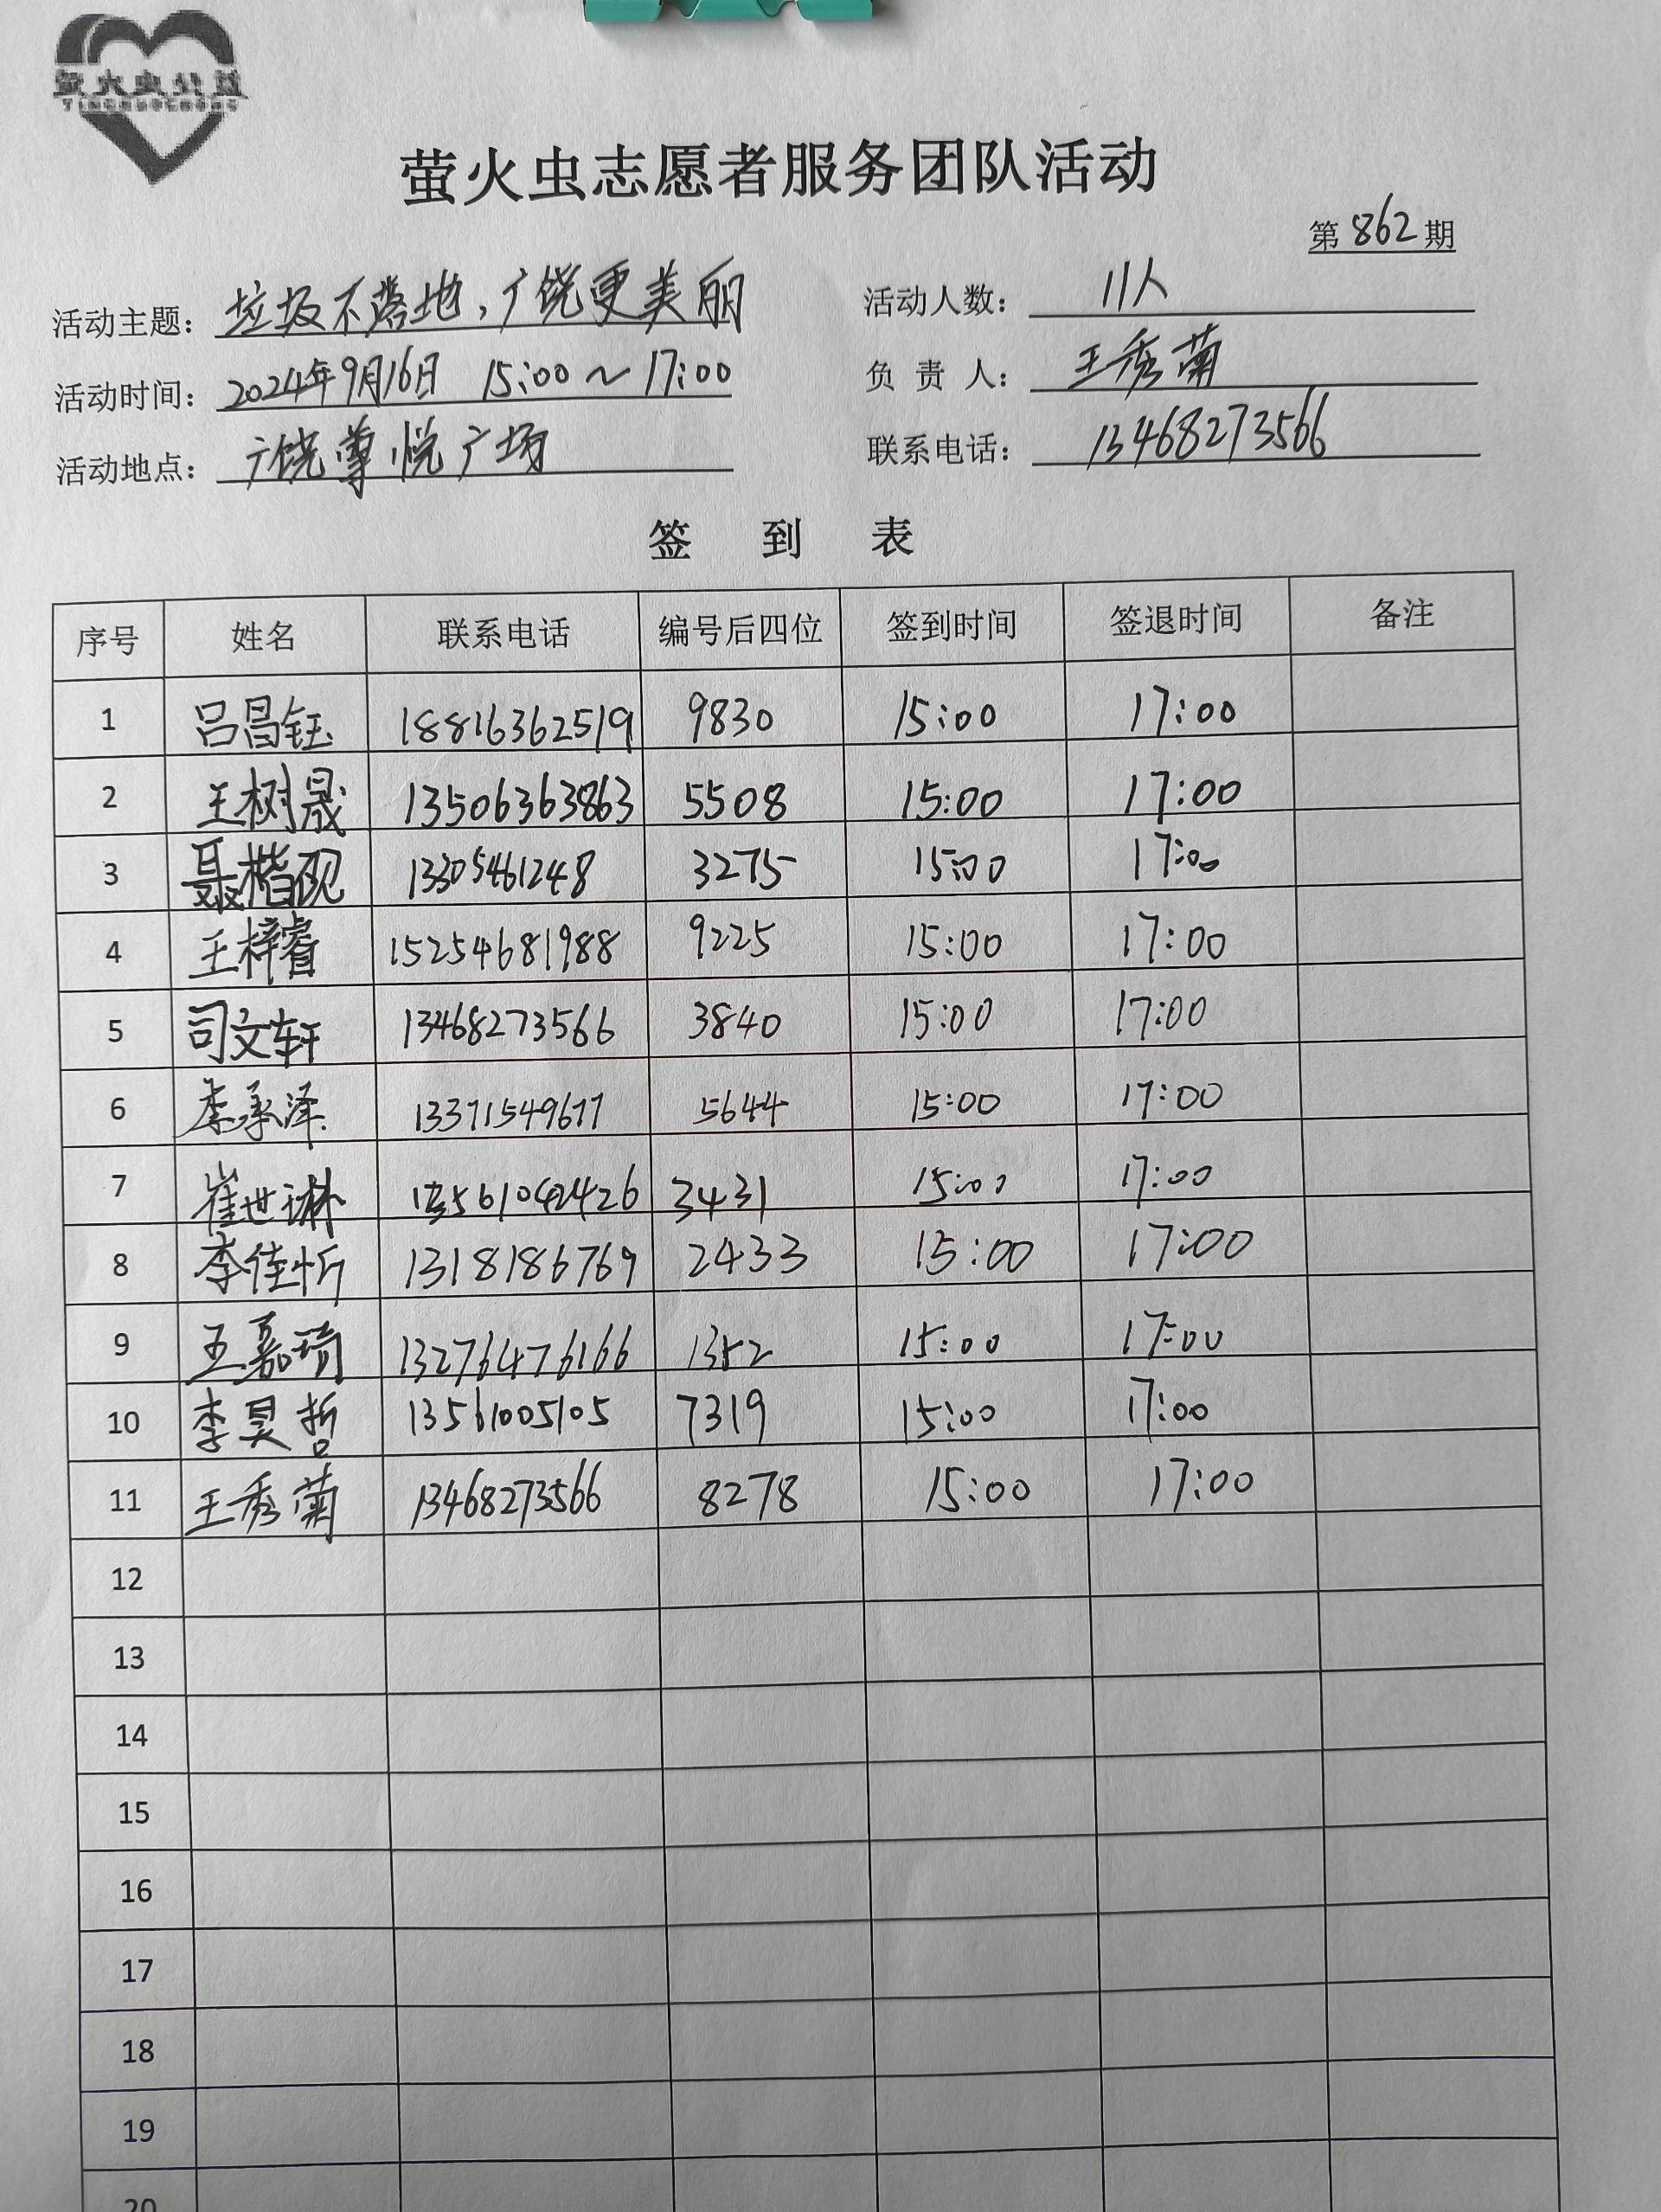 萤火虫公益
YINGHUOCHONG
萤火虫志愿者服务团队活动
第862期
活动主题：垃圾不落地，广饶更美丽 活动人数：11人
活动时间：2024年9月16日 15:00～17:00 负责人：王秀菊
活动地点：广饶尊悦广场 联系电话：13468273566
签到表
序号 姓名 联系电话 编号后四位 签到时间 签退时间 备注
1 吕昌钰 18816362519 9830 15:00 17:00
2 王树晟 13506363863 5508 15:00 17:00
3 聂楷砚 13305461248 3275 15:00 17:00
4 王梓睿 15254681988 9225 15:00 17:00
5 司文轩 13468273566 3840 15:00 17:00
6 李承泽 13371549677 5644 15:00 17:00
7 崔世琳 3431 15:00 17:00
8 李佳忻 1318186769 2433 15:00 17:00
9 王嘉琦 13276476166 1352 15:00 17:00
10 李昊哲 13561005105 7319 15:00 17:00
11 王秀菊 13468273566 8278 15:00 17:00
12
13
14
15
16
17
18
19
20